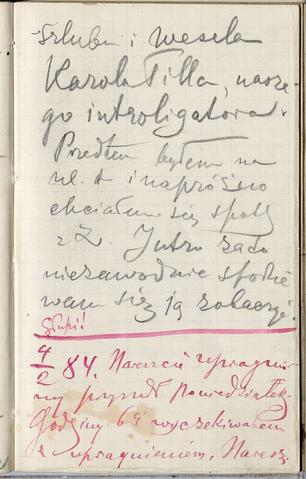 ślubu i wesela
Karola Tilla, nasze-
go introligatora.
Przedtem byłem na
ul. i napróżno
chciałem się spotk
z Z. Jutro zato
niezawodnie spodzie
wam się ją zobaczyć.
głupi!
4/2 84. Nareszcie upragnio
ny przyszedł poniedziałek.
Godziny 6ej wyczekiwałem
z upragnieniem. Naresz-